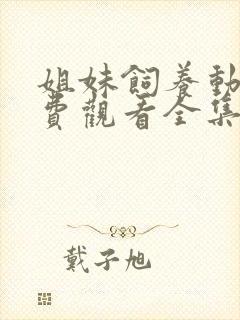 姐妹飼養動
費觀看全集
戴子旭